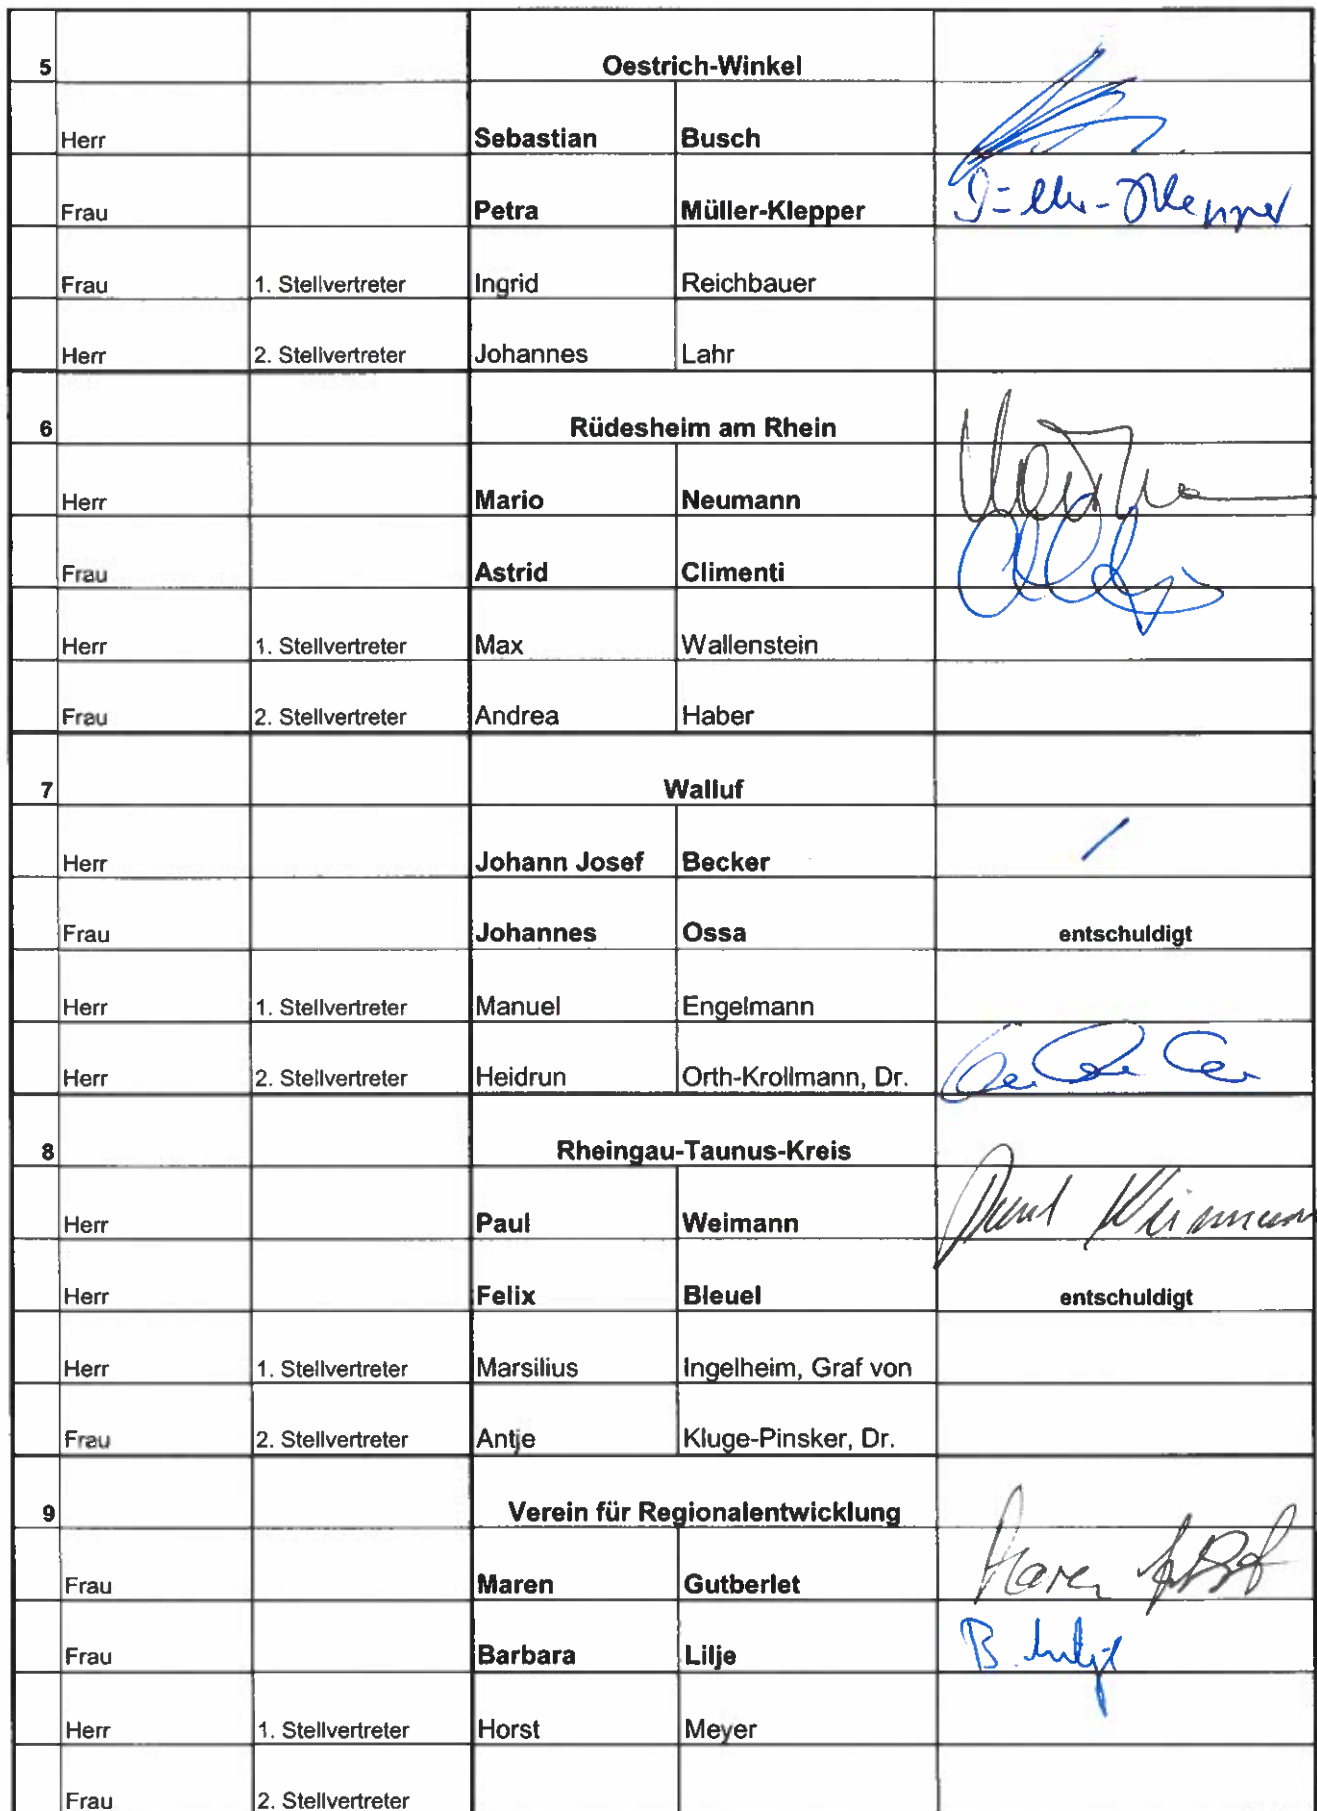 5 Oestrich-Winkel
Herr Sebastian Busch
Frau Petra Müller-Klepper Müller-Klepper
Frau 1. Stellvertreter Ingrid Reichbauer
Herr 2. Stellvertreter Johannes Lahr
6 Rüdesheim am Rhein
Herr Mario Neumann
Frau Astrid Climenti
Herr 1. Stellvertreter Max Wallenstein
Frau 2. Stellvertreter Andrea Haber
7 Walluf
Herr Johann Josef Becker /
Frau Johannes Ossa entschuldigt
Herr 1. Stellvertreter Manuel Engelmann
Herr 2. Stellvertreter Heidrun Orth-Krollmann, Dr.
8 Rheingau-Taunus-Kreis
Herr Paul Weimann Paul Weimann
Herr Felix Bleuel entschuldigt
Herr 1. Stellvertreter Marsilius Ingelheim, Graf von
Frau 2. Stellvertreter Antje Kluge-Pinsker, Dr.
9 Verein für Regionalentwicklung
Frau Maren Gutberlet Maren
Frau Barbara Lilje B. Lilje
Herr 1. Stellvertreter Horst Meyer
Frau 2. Stellvertreter